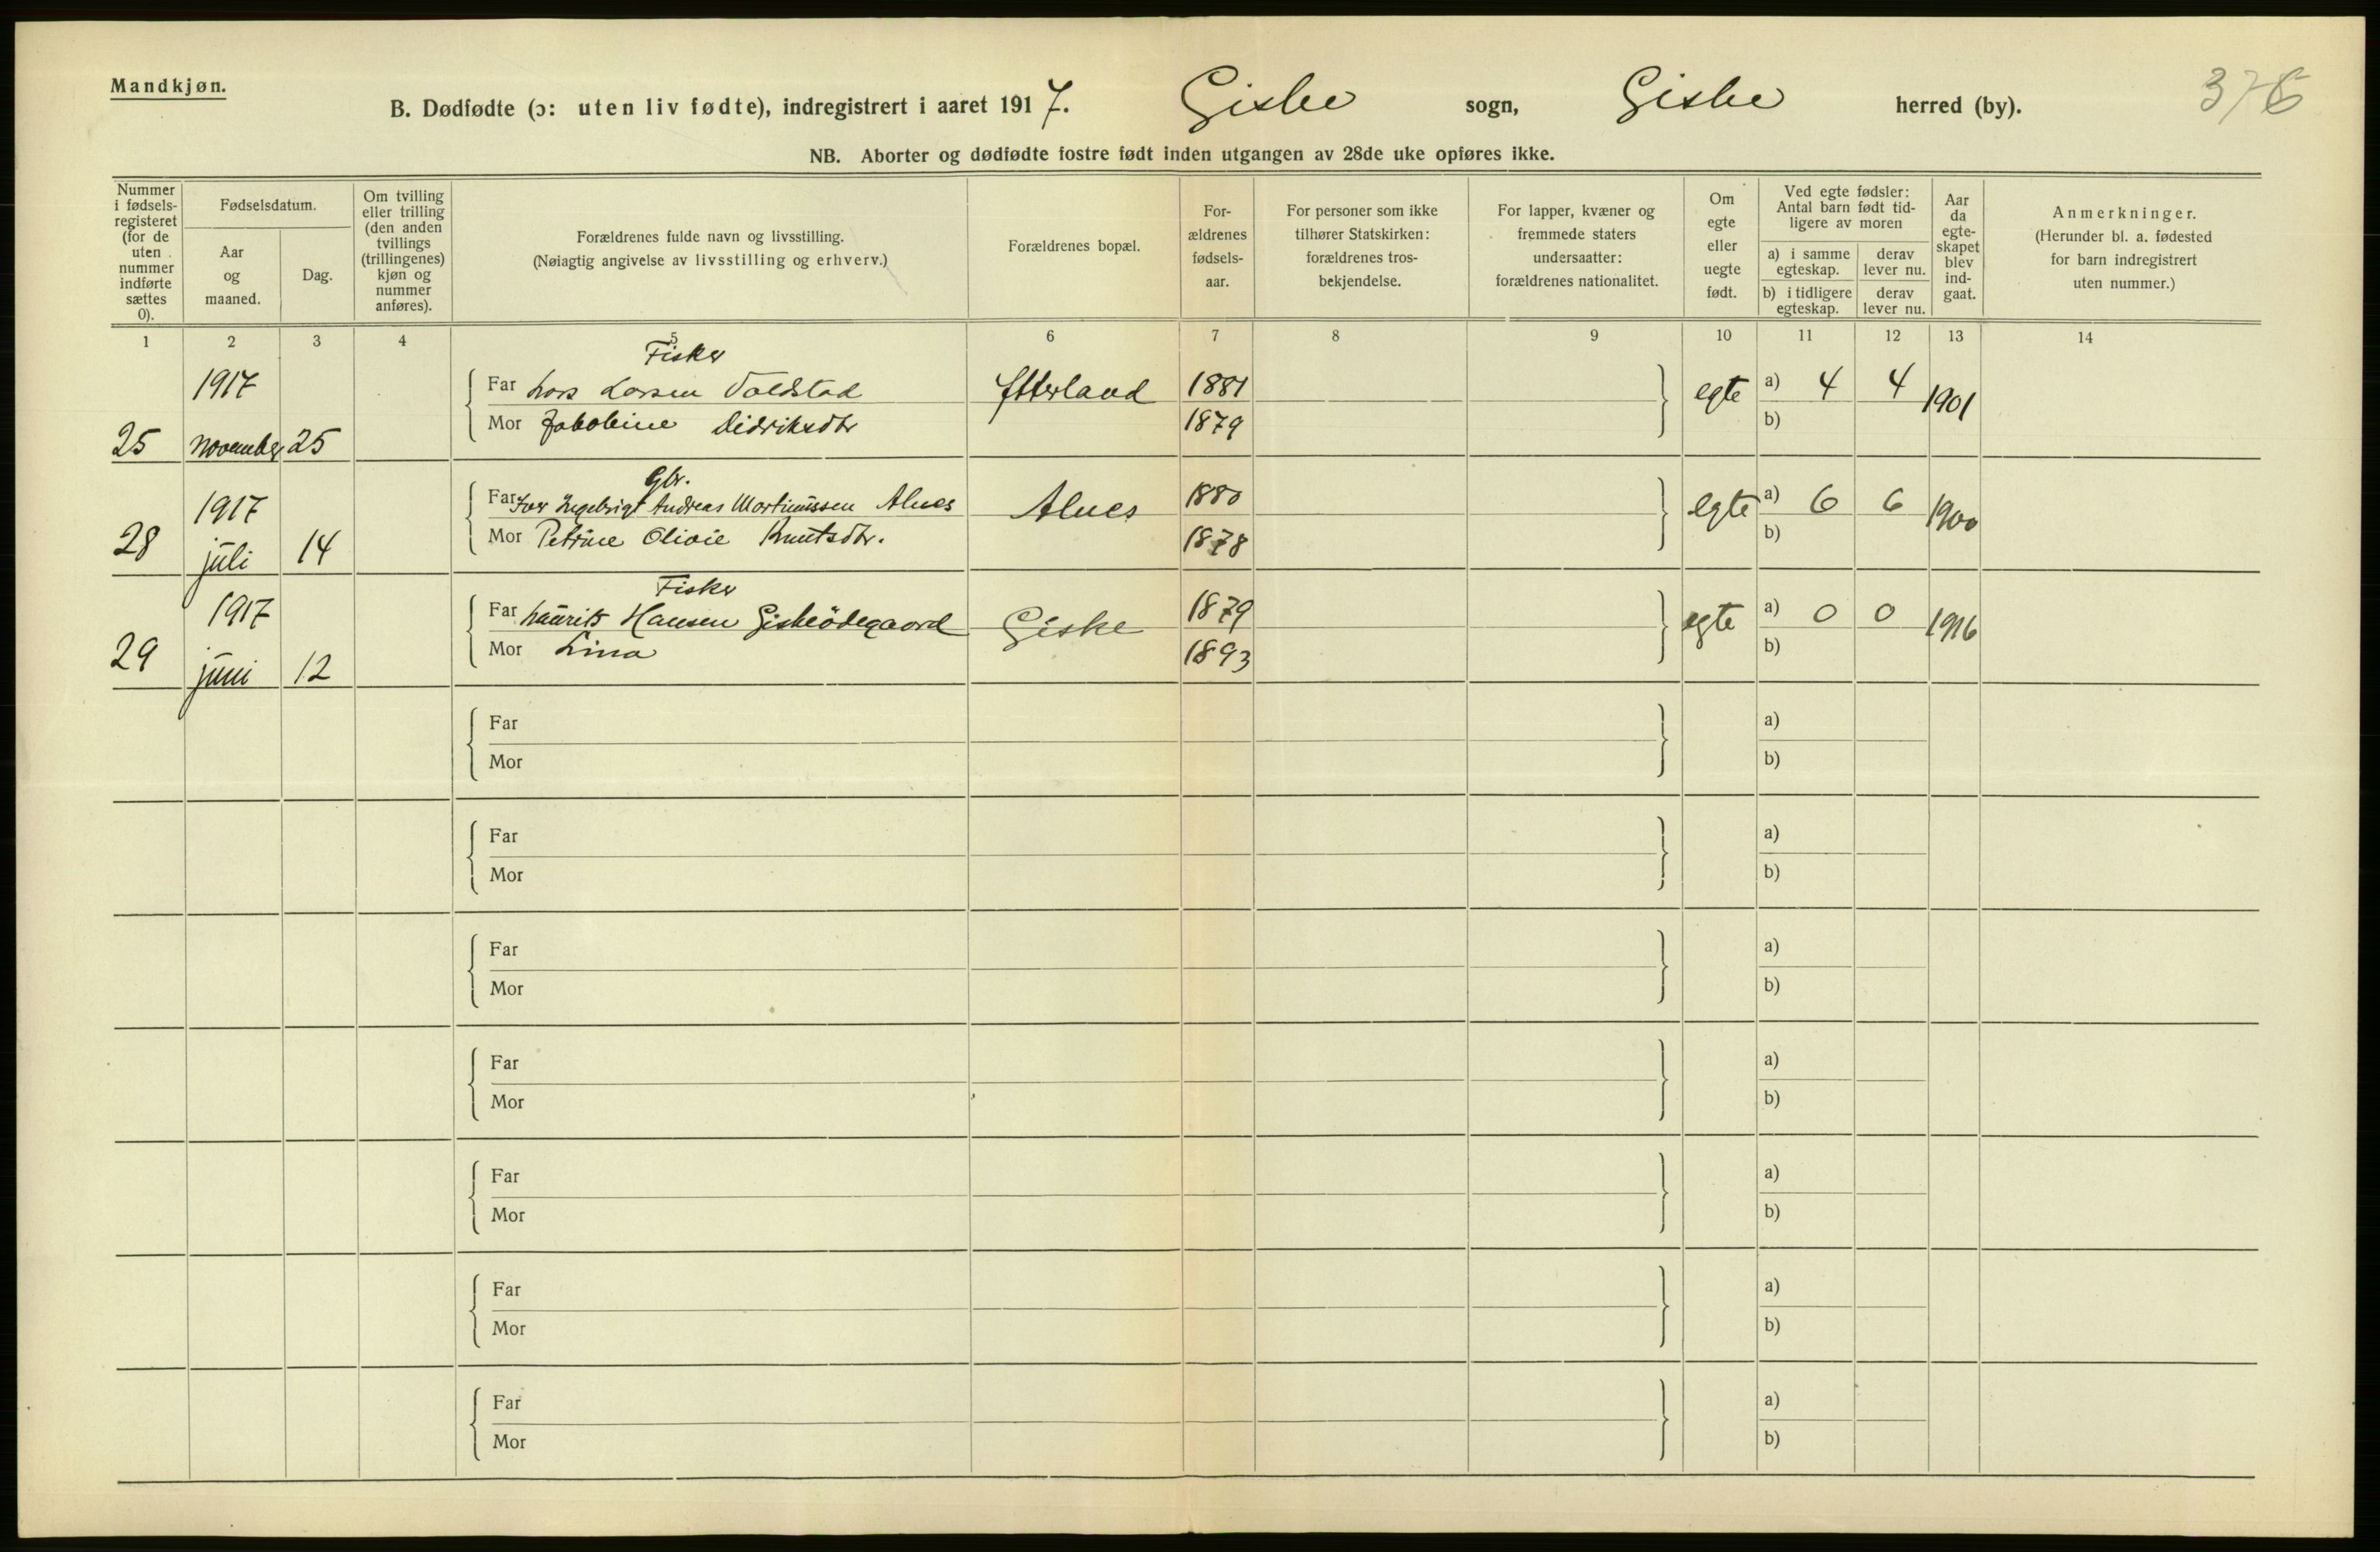 Mandkjøn.
B. Dødfødte (ɔ: uten liv fødte), indregistrert i aaret 1917. Giske sogn, Giske herred (by).
376
NB. Aborter og dødfødte fostre født inden utgangen av 28de uke opføres ikke.
Nummer i fødsels-registeret (for de uten nummer indførte sættes 0).
Fødselsdatum.
Aar og maaned.
Dag.
Om tvilling eller trilling (den anden tvillings (trillingenes) kjøn og nummer anføres).
Forældrenes fulde navn og livsstilling.
(Nøiagtig angivelse av livsstilling og erhverv.)
Forældrenes bopæl.
For-ældrenes fødsels-aar.
For personer som ikke tilhører Statskirken: forældrenes tros-bekjendelse.
For lapper, kvæner og fremmede staters undersaatter: forældrenes nationalitet.
Om egte eller uegte født.
Ved egte fødsler: Antal barn født tid-ligere av moren
a) i samme egteskap.
derav lever nu.
b) i tidligere egteskap.
derav lever nu.
Aar da egte-skapet blev ind-gaat.
Anmerkninger.
(Herunder bl. a. fødested for barn indregistrert uten nummer.)
1 2 3 4 5 6 7 8 9 10 11 12 13 14
Fisker
1917 Far Lars Larsen Valdstad Ytterland 1881 egte a) 4 4 1901
25 november 25 Mor Jakobine Didriksdtr 1879 b)
Gbr.
1917 Far Iver Ingebrigt Andreas Martinussen Alnes Alnes 1880 egte a) 6 6 1900
28 juli 14 Mor Petrine Olivie Knutsdtr. 1878 b)
Fisker
1917 Far Laurits Hansen Giskeödegaard Giske 1879 egte a) 0 0 1916
29 juni 12 Mor Lina 1893 b)
Far a)
Mor b)
Far a)
Mor b)
Far a)
Mor b)
Far a)
Mor b)
Far a)
Mor b)
Far a)
Mor b)
Far a)
Mor b)